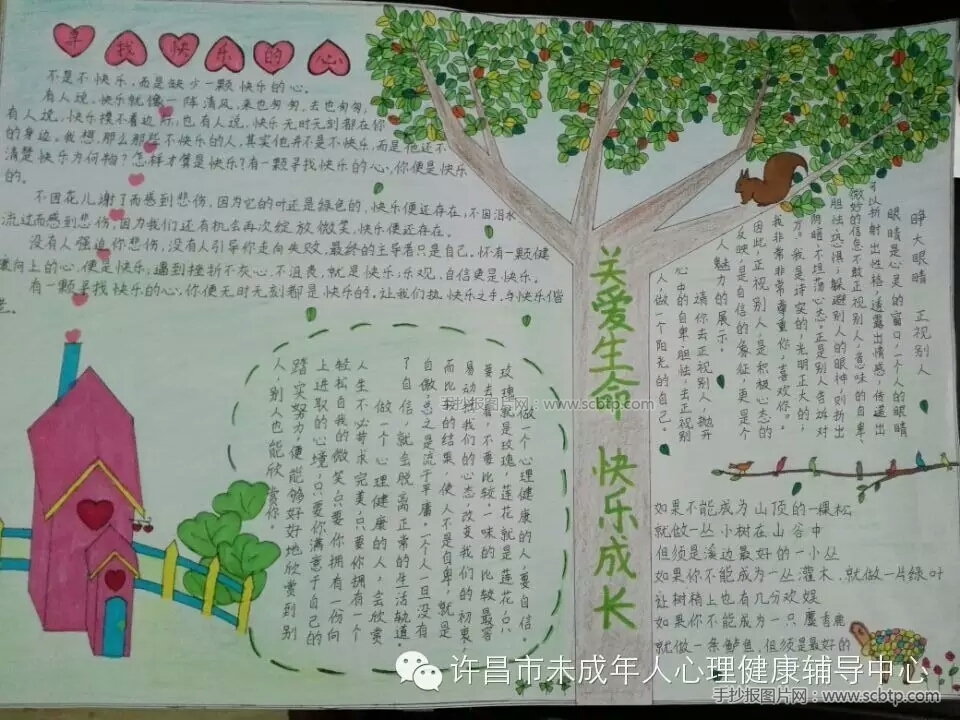 寻找快乐的心
不是不快乐,而是缺少一颗快乐的心。
有人说,快乐就像一阵清风,来也匆匆,去也匆匆,
有人说,快乐摸不着边际,也有人说,快乐无时无刻都在你
的身边。我想,那么那些不快乐的人,其实他并不是不快乐,而是他还不
清楚快乐为何物?怎样才算是快乐?有一颗寻找快乐的心,你便是快乐
的。
不因花儿谢了而感到悲伤,因为它的叶还是绿色的,快乐便还存在;不因泪水
流过而感到悲伤,因为我们还有机会再次绽放微笑,快乐便还存在。
没有人强迫你悲伤,没有人引导你走向失败,最终的主导者只是自己。怀有一颗健
康向上的心,便是快乐;遇到挫折不灰心,不沮丧,就是快乐;乐观,自信更是快乐。
有一颗寻找快乐的心,你便无时无刻都是快乐的。让我们执快乐之手,与快乐偕
老。
关爱生命 快乐成长
睁大眼睛 正视别人
眼睛是心灵的窗口,一个人的眼睛
可以折射出性格,透露出情感,传递出
微妙的信息。不敢正视别人,意味的自卑、
胆怯、恐惧;躲避别人的眼神则折出
阴暗、不坦荡心态。正是别人告诉对
方:“我是诚实的,光明正大的,
我非常非常尊重你,喜欢你。”
因此,正视别人,是积极心态的
反映,是自信的象征,更是个
人魅力的展示。
请你去正视别人,抛开
心中的自卑、胆怯,去正视别
人,做一个阳光的自己。
做一个心理健康的人,要自信。
玫瑰就是玫瑰,莲花就是莲花,只
要去看,不要比较。一味的比较最容
易动摇我们的心态,改变我们的初衷,
而比较的结果,使人不是自卑,就是
自傲,总之是流于平庸。一个人一旦没有
了自信,就会脱离正常的生活轨道。
做一个心理健康的人,会欣赏
人生不必苛求完美,只要你拥有一个
轻松自我的微笑;只要你拥有一份向
上进取的心境;只要你满意于自己的
踏实努力,便能够好好地欣赏到别
人,别人也能欣赏你。
如果不能成为山顶的一棵松
就做一丛小树在山谷中
但须是溪边最好的一小丛
如果你不能成为一丛灌木,就做一片绿叶
让树梢上也有几分欢娱
如果你不能成为一只麝香鹿
就做一条鲈鱼,但须是最好的
手抄报图片网:www.scbtp.com
许昌市未成年人心理健康辅导中心
手抄报图片网:www.scbtp.com